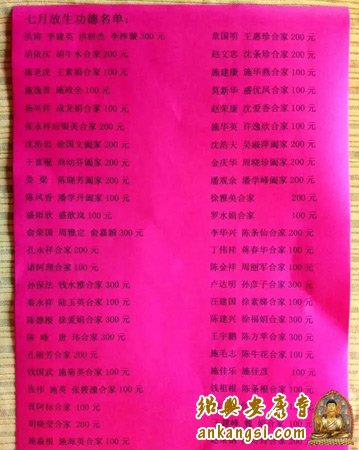 七月放生功德名单：
李建英 300元
胡依庆 胡牛水合家200元
施老虎 王素娟合家100元
施逸香 施政全 100元
杨兴祥 成龙娟合家100元
张水祥 合家200元
沈浩忠 俞国文阖家200元
陈晓芳阖家200元
陈风香 潘学丹阖家100元
盛雨欣 盛歆岚 100元
俞荣国 周雅定 俞嘉颖300元
孔永祥合家200元
诸阿理合家100元
孙保法 钱水雅合家300元
秦永祥 陆玉英合家100元
陈德根 徐爱娟合家300元
陈峰 唐玮合家300元
孔丽芳合家200元
钱国武 施菊英合家100元
张伟 施英 合家100元
贾阿标合家100元
周晓莹合家200元
施淼根 施海英合家100元
章国明 王惠珍合家200元
赵文忠 沈条珍合家200元
施建康 施华燕合家100元
莫新华 盛优凤合家100元
赵荣康 沈爱香合家100元
施华英 许逸欣合家100元
沈浩夫 吴淑萍阖家200元
金庆华 周晓珍阖家200元
潘观余 潘学峰阖家200元
徐雅美合家 200元
罗水娟合家 100元
李华兴 陈条仙合家200元
丁伟祥 蒋春华合家100元
陈金祥 周丽军合家100元
卢达明 孙彦子合家300元
汪建国 徐素娣合家100元
陈建兴 徐福娟合家300元
王宇鹏 陈方苹合家300元
施毛志 陈牛花合家100元
施佳乐 施佳彦 100元
钱祖根 陈条根合家100元
绍兴安康寺
ankangsi.com